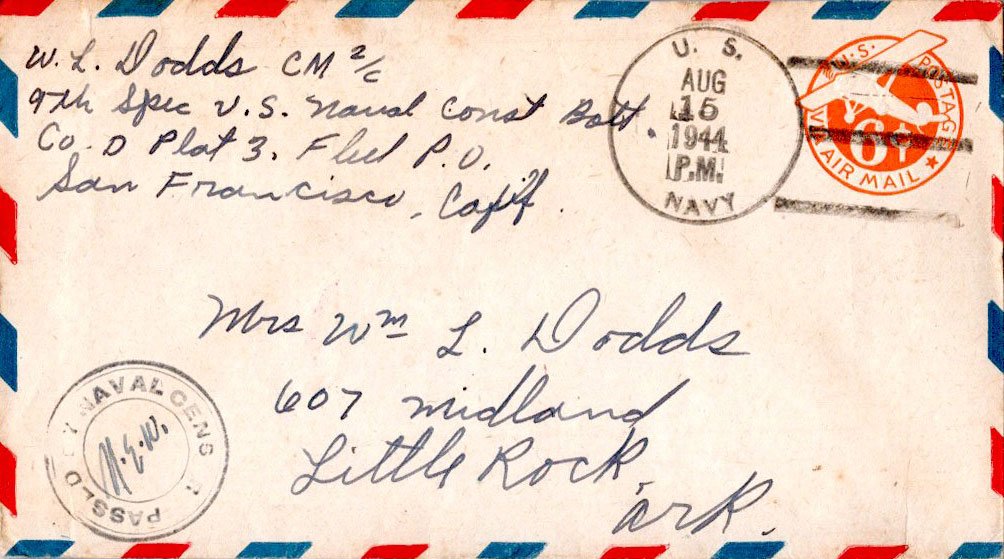 W. L. Dodds CM 2/c
9th Spec U.S. Naval Const Batt.
Co. D Plat 3. Fleet P.O.
San Francisco, Calif.
U. S.
AUG
15
1944
P.M.
NAVY
U.S. POSTAGE
6¢
VIA AIR MAIL
Mrs Wm L. Dodds
607 Midland
Little Rock,
Ark.
PASSED BY NAVAL CENS